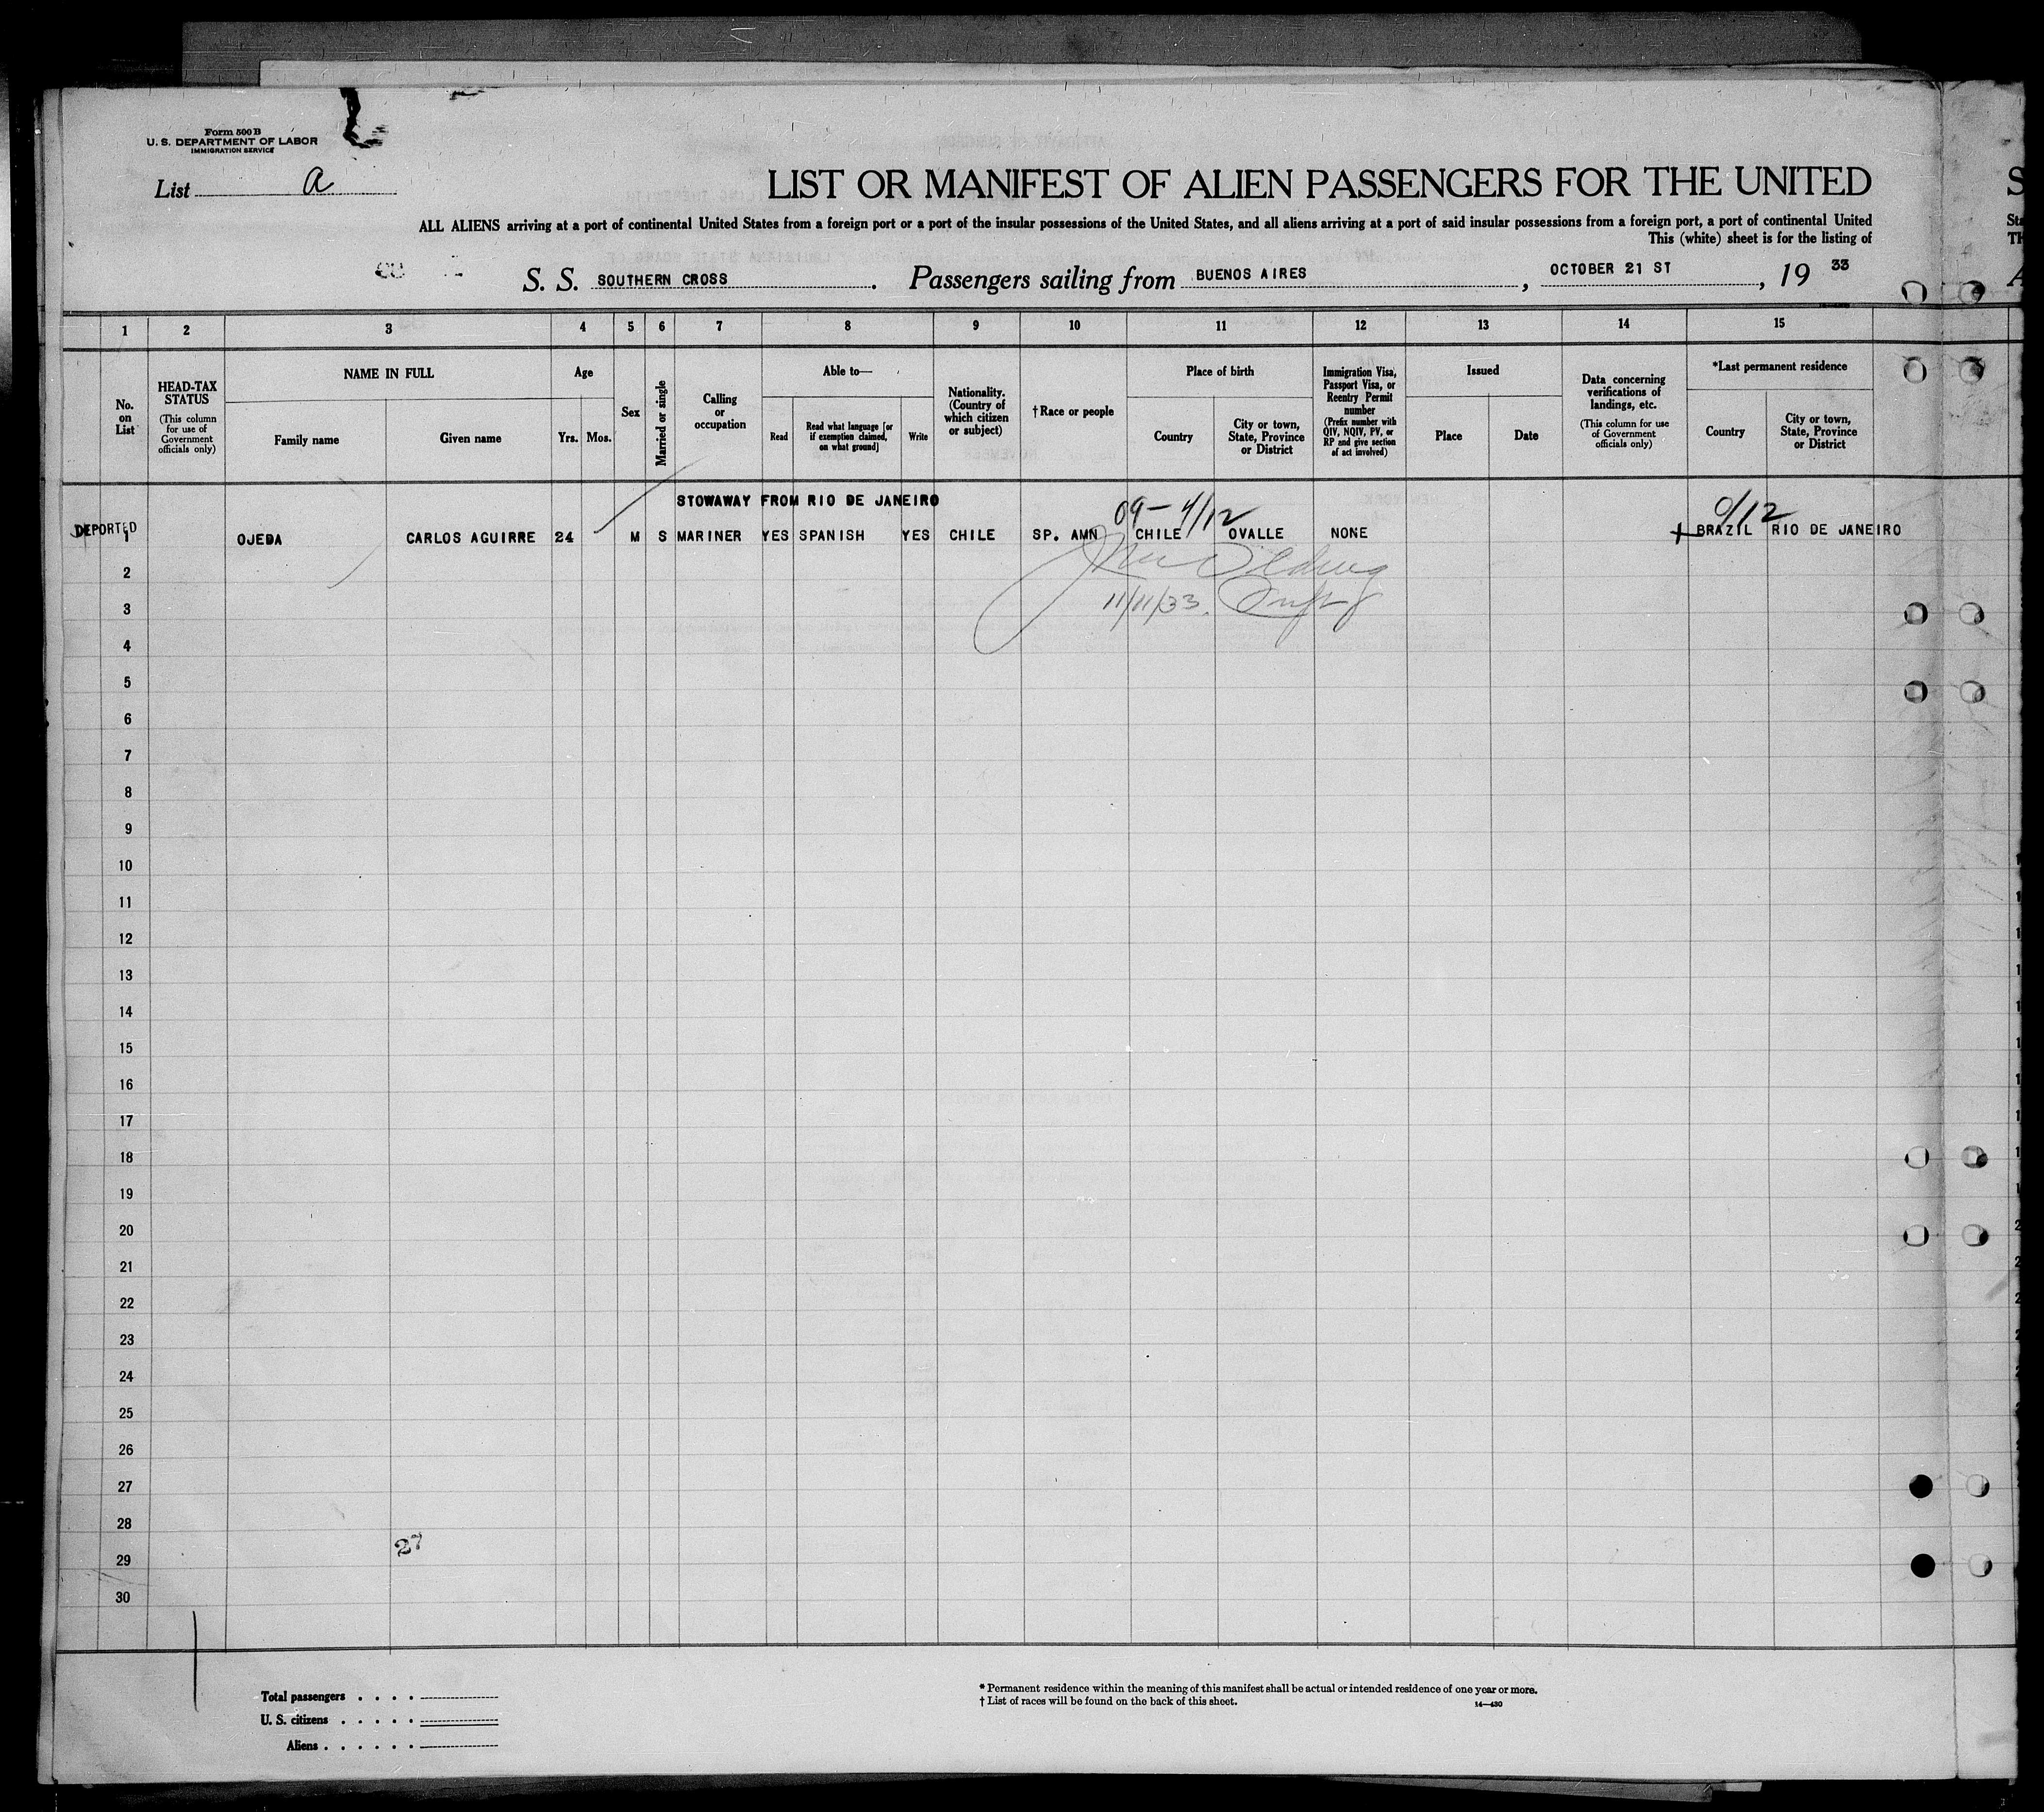 Form 500 B
U. S. DEPARTMENT OF LABOR
IMMIGRATION SERVICE
List a
LIST OR MANIFEST OF ALIEN PASSENGERS FOR THE UNITED
ALL ALIENS arriving at a port of continental United States from a foreign port or a port of the insular possessions of the United States, and all aliens arriving at a port of said insular possessions from a foreign port, a port of continental United
This (white) sheet is for the listing of
S. S. SOUTHERN CROSS. Passengers sailing from BUENOS AIRES, OCTOBER 21 ST, 19 33
1 2 3 4 5 6 7 8 9 10 11 12 13 14 15
No. on List
HEAD-TAX STATUS
(This column for use of Government officials only)
NAME IN FULL
Family name
Given name
Age
Yrs. Mos.
Sex
Married or single
Calling or occupation
Able to—
Read
Read what language [or if exemption claimed, on what ground]
Write
Nationality. (Country of which citizen or subject)
†Race or people
Place of birth
Country
City or town, State, Province or District
Immigration Visa, Passport Visa, or Reentry Permit number
(Prefix number with QIV, NQIV, PV, or RP and give section of act involved)
Issued
Place
Date
Data concerning verifications of landings, etc.
(This column for use of Government officials only)
*Last permanent residence
Country
City or town, State, Province or District
STOWAWAY FROM RIO DE JANEIRO
09- 4/12
0/12
DEPORTED
1 OJEDA CARLOS AGUIRRE 24 M S MARINER YES SPANISH YES CHILE SP. AMN CHILE OVALLE NONE BRAZIL RIO DE JANEIRO
2
11/11/33.
3
4
5
6
7
8
9
10
11
12
13
14
15
16
17
18
19
20
21
22
23
24
25
26
27
28
27
29
30
Total passengers . . . .
U. S. citizens . . . . .
Aliens . . . . . .
* Permanent residence within the meaning of this manifest shall be actual or intended residence of one year or more.
† List of races will be found on the back of this sheet.
14—430